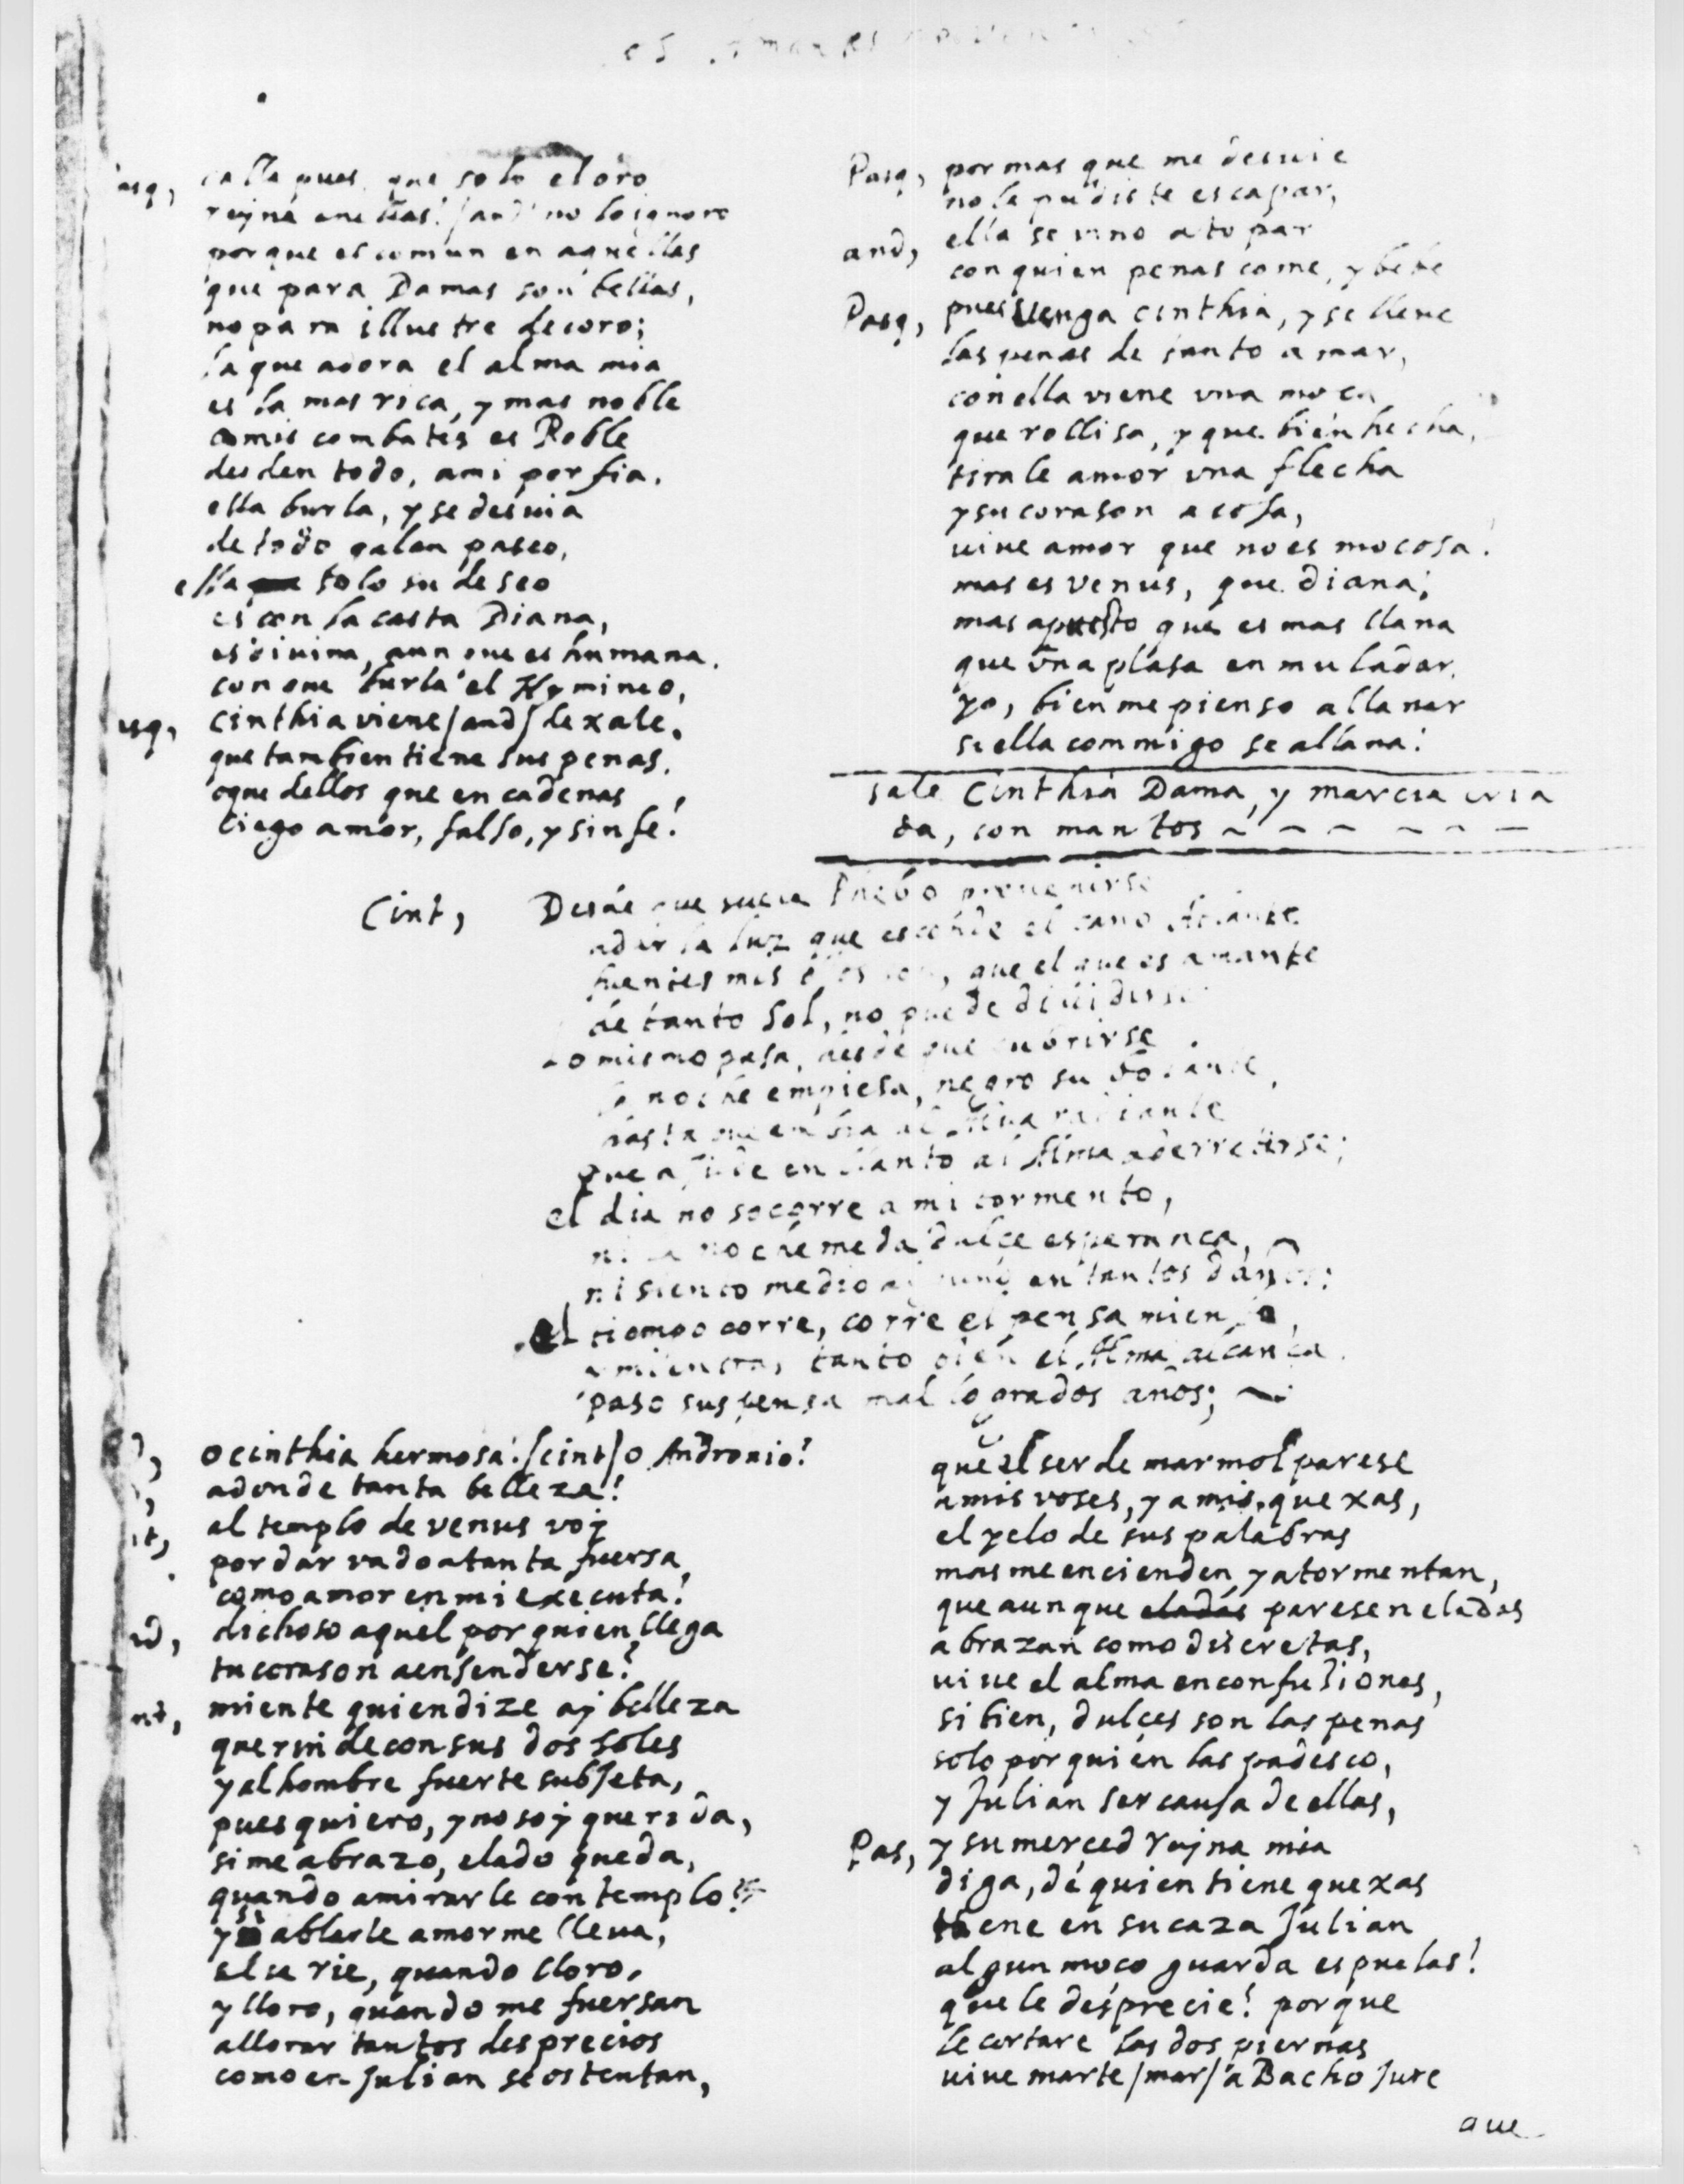 calla pues, que solo el oro
reyna en ellas! /and/ no lo ignoro
porque es comun en aquellas
que para Damas son bellas,
no para illustre decoro;
la que adora el alma mia
es la mas rica, y mas noble
a mis combates es Roble
desden todo, a mi porfia.
ella burla, y se desuia
de todo galan paseo,
ella solo su deseo
es con la casta Diana,
es diuina, aunque es humana.
con que burla el Hymineo,
asq, Cinthia viene /and/ dexale.
que tambien tiene sus penas.
que dellos que en cadenas
ciego amor, falso, y sin fe!
Pasq, por mas que me desuie
no la pudiste escapar,
and, ella se vino a topar
con quien penas come, y bebe
Pasq, pues uenga cinthia, y se lleue
las penas de tanto amar,
con ella viene vna moca
que rollisa, y que bien hecha,
tirale amor vna flecha
y su corason acosa,
uiue amor que no es mocosa!
mas es venus, que diana;
mas apuesto que es mas llana
que vna plasa en muladar.
yo, bien me pienso allanar
si ella commigo se allana!
sale Cinthia Dama, y marcia cria
da, con mantos
Cint, Desde que Phebo
a dar la luz que esconde el
fuentes mis, que el que es amante
de tanto Sol, no puede
Lo mismo pasa, desde que cubrirse
la noche empiesa, negro su
hasta que
que en llanto al Alma a derretirse;
el dia no socorre a mi tormento,
ni la noche me da dulce esperanca,
ni siento medio en tantos daños:
el tiempo corre, corre el pensamiento,
mientras tanto bien el Alma alcanca
paso suspensa mal logrados años;
o cinthia hermosa! /cint/ o Andronio!
adonde tanta belleza!
al templo de venus voy
por dar vado a tanta fuersa,
como amor en mi executa!
dichoso aquel por quien llega
tu corason a ensenderse!
miente quien dize ay belleza
que rinde con sus dos soles
y al hombre fuerte subjeta,
pues quiero, y no soy querida,
si me abrazo, elado queda,
quando a mirarle contemplo!
y si ablarle amor me lleua,
el se rie, quando lloro,
y lloro, quando me fuersan
a llorar tantos desprecios
como en Julian se ostentan,
que el ser de marmol parese
a mis voses, y a mis quexas,
el yelo de sus palabras
mas me encienden y atormentan,
que aunque eladas paresen eladas
abrazan como discretas,
uiue el alma en confusiones,
si bien, dulces son las penas
solo por quien las padesco,
y Julian ser causa de ellas,
Pas, y su merced reyna mia
diga, de quien tiene quexas
tiene en su caza Julian
algun moco guarda espuelas!
que le desprecie! porque
le cortare las dos piernas
uiue marte /mar/ a Bacho jure
que